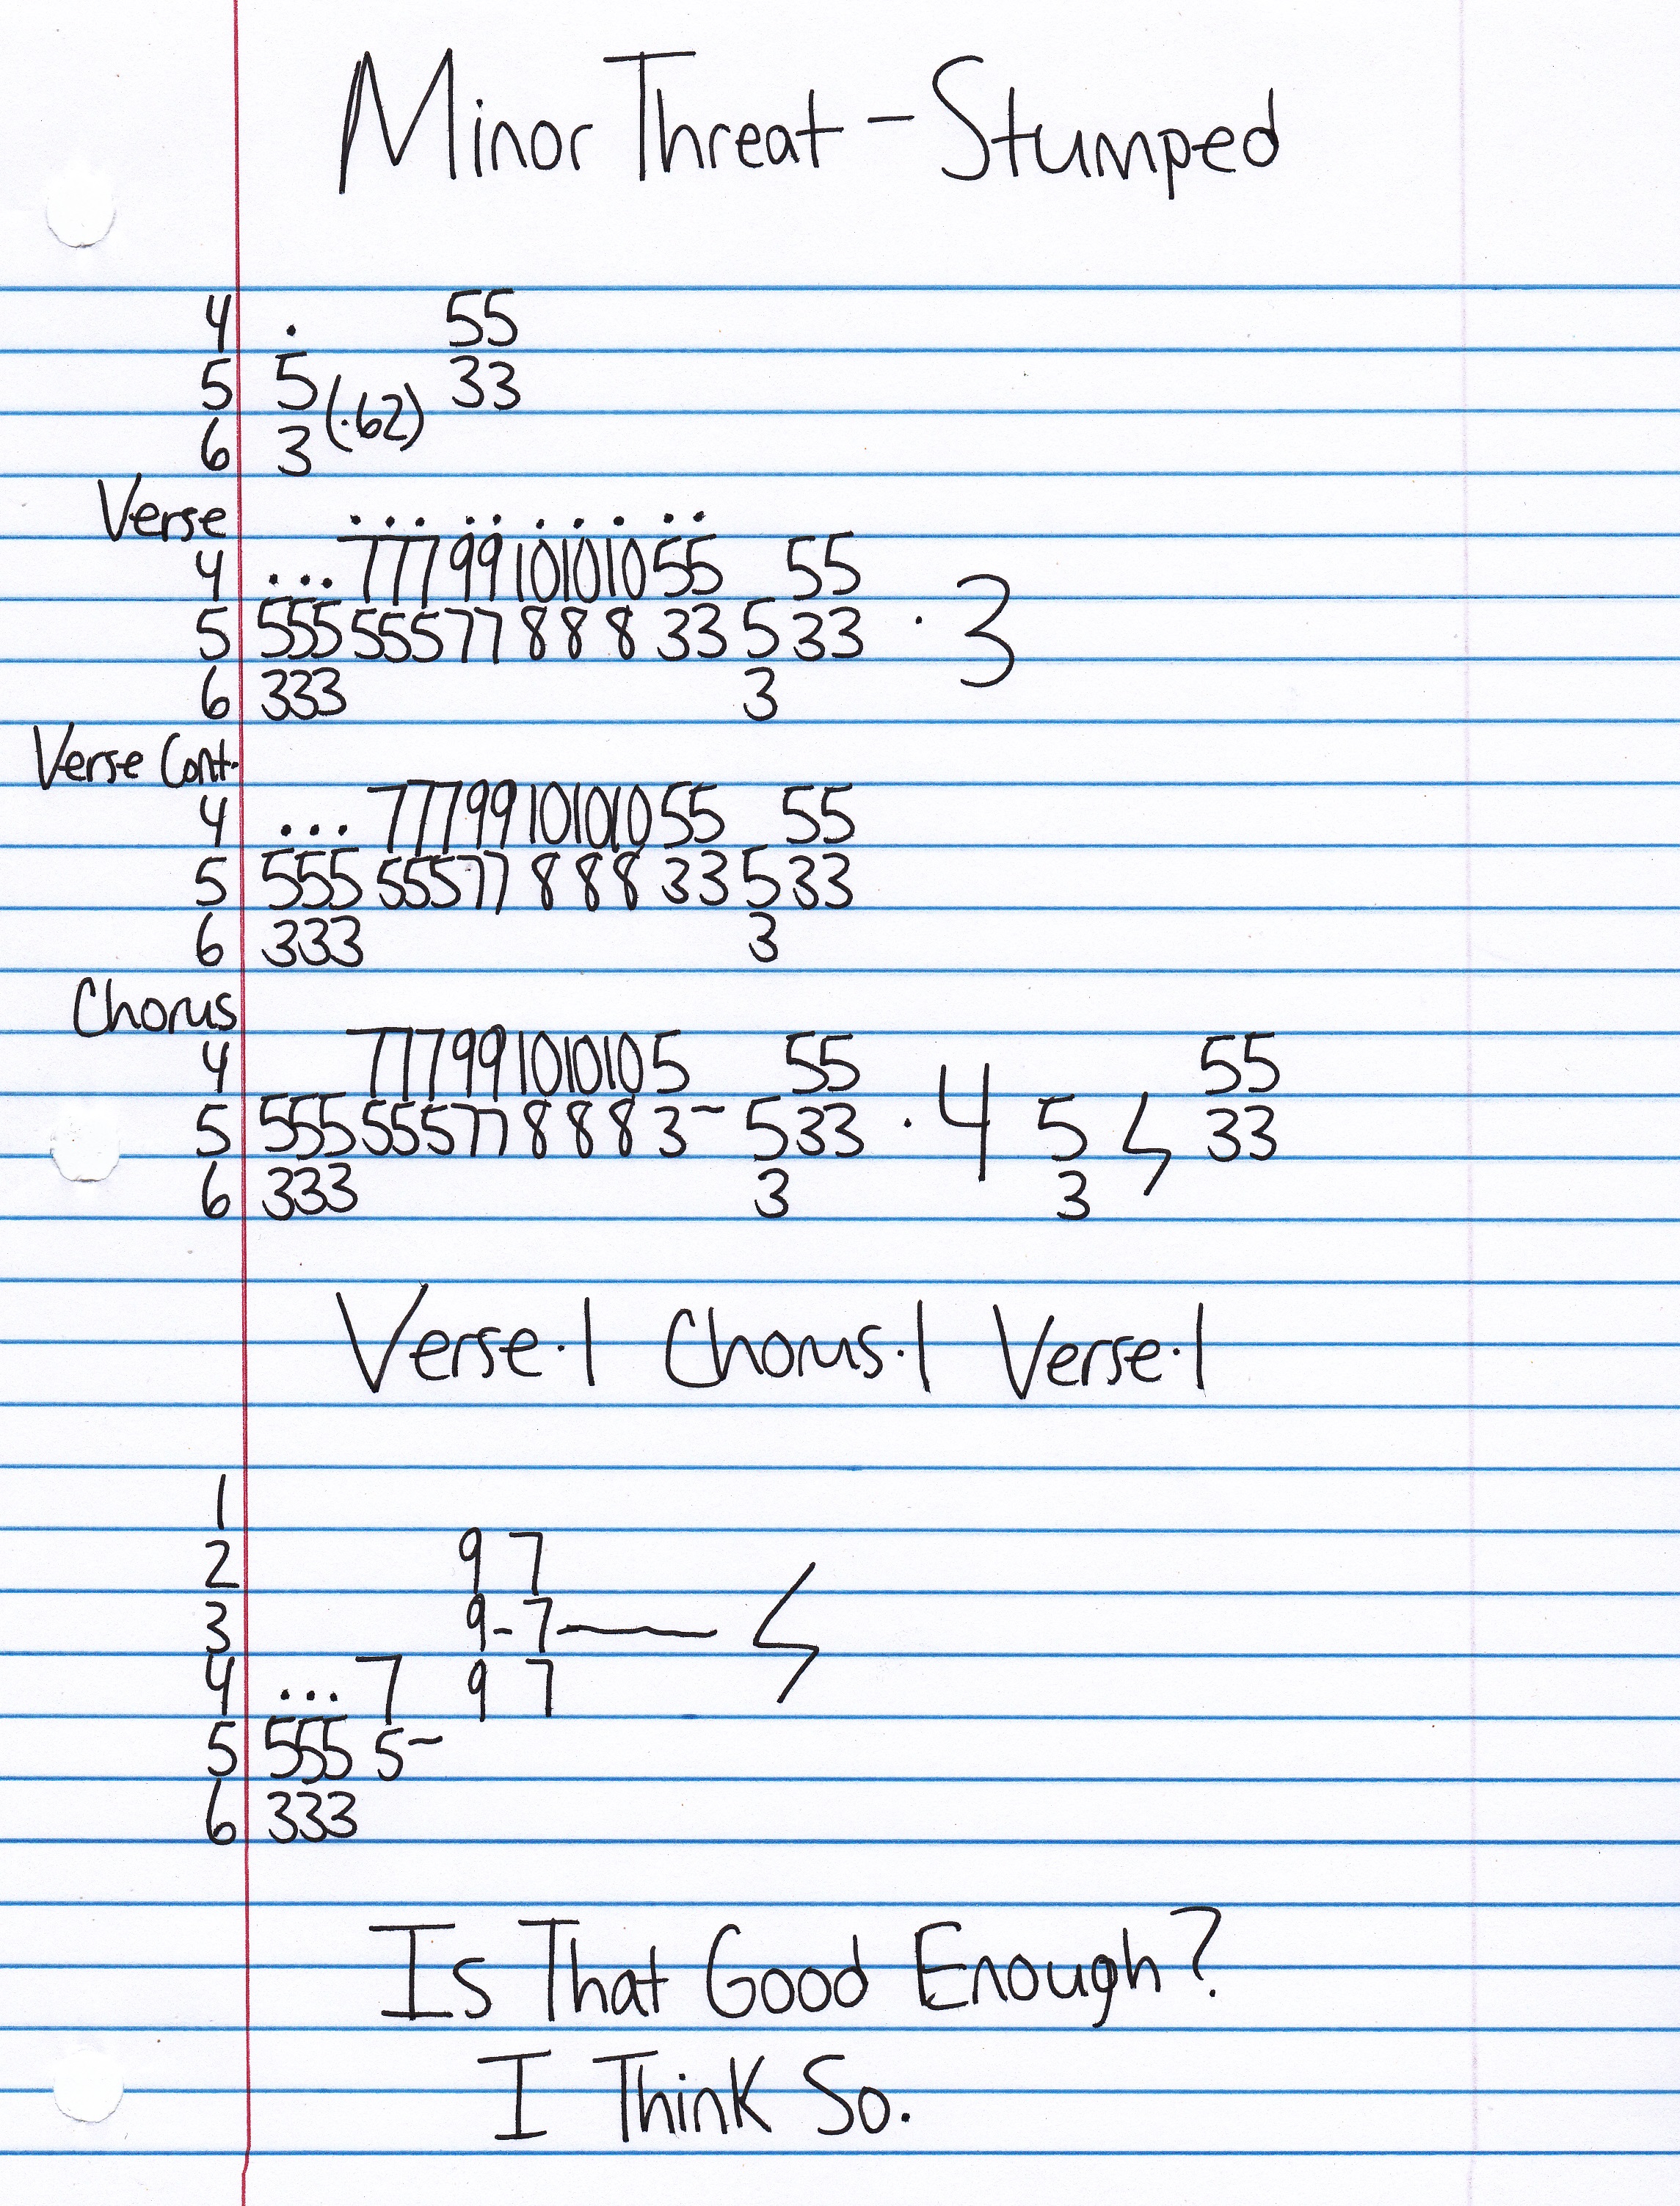 Minor Threat - Stumped
4 . 55
5 5 (.62) 33
6 3
Verse . . . . . . . . . .
4 ... 7 7 7 9 9 10 10 10 5 5 55
5 555 5 5 5 7 7 8 8 8 3 3 5 33 · 3
6 333 3
Verse Cont.
4 ... 7 7 7 9 9 10 10 10 5 5 55
5 555 5 5 5 7 7 8 8 8 3 3 5 33
6 333 3
Chorus
4 7 7 7 9 9 10 10 10 5 55 55
5 555 5 5 5 7 7 8 8 8 3~ 5 33 · 4 5 33
6 333 3 3
Verse·1 Chorus·1 Verse·1
1
2 9 7
3 9-7—
4 ... 7 9 7
5 555 5~
6 333
Is That Good Enough?
I Think So.